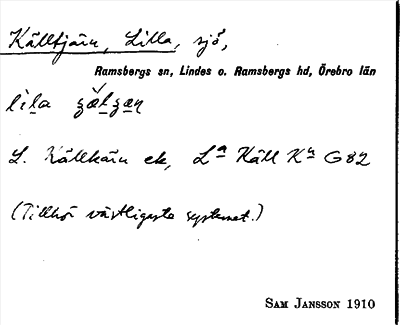 Källtjärn, Lilla, sjö,
Ramsbergs sn, Lindes o. Ramsbergs hd, Örebro län
lìla
L. Källkärn ek, Lª Käll Kⁿ G82
(Tillhör västligaste systemet.)
SAM JANSSON 1910